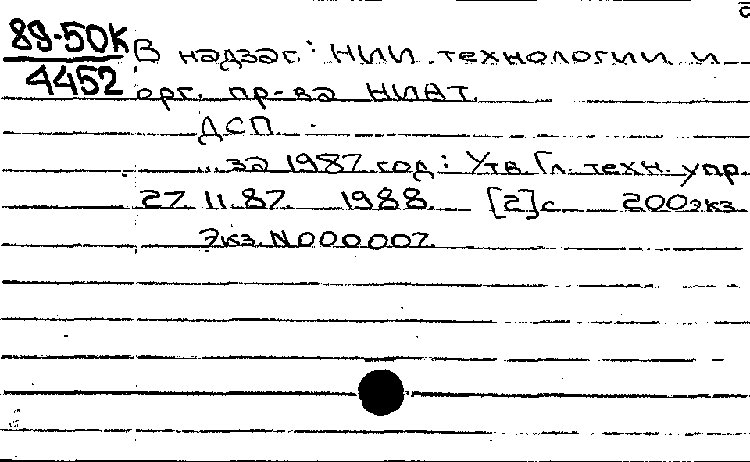 89-50К
4452
В надзаг: НИИ технологии и
орг. пр-ва НИАТ.
ДСП.
... за 1987 год: Утв. Гл. техн. упр.
27.11.87. 1988. [2]с 200экз
Экз. N000007.